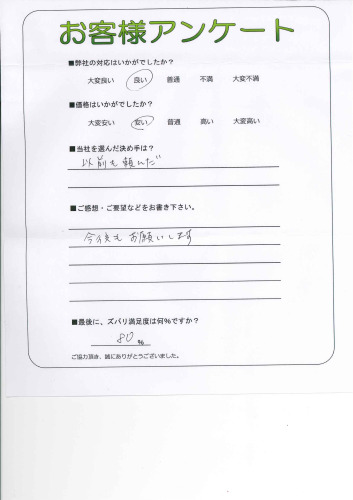 お客様アンケート
■弊社の対応はいかがでしたか？
大変良い 良い 普通 不満 大変不満
■価格はいかがでしたか？
大変安い 安い 普通 高い 大変高い
■当社を選んだ決め手は？
以前も頼んだ
■ご感想・ご要望などをお書き下さい。
今後もお願いします
■最後に、ズバリ満足度は何％ですか？
80 ％
ご協力頂き、誠にありがとうございました。